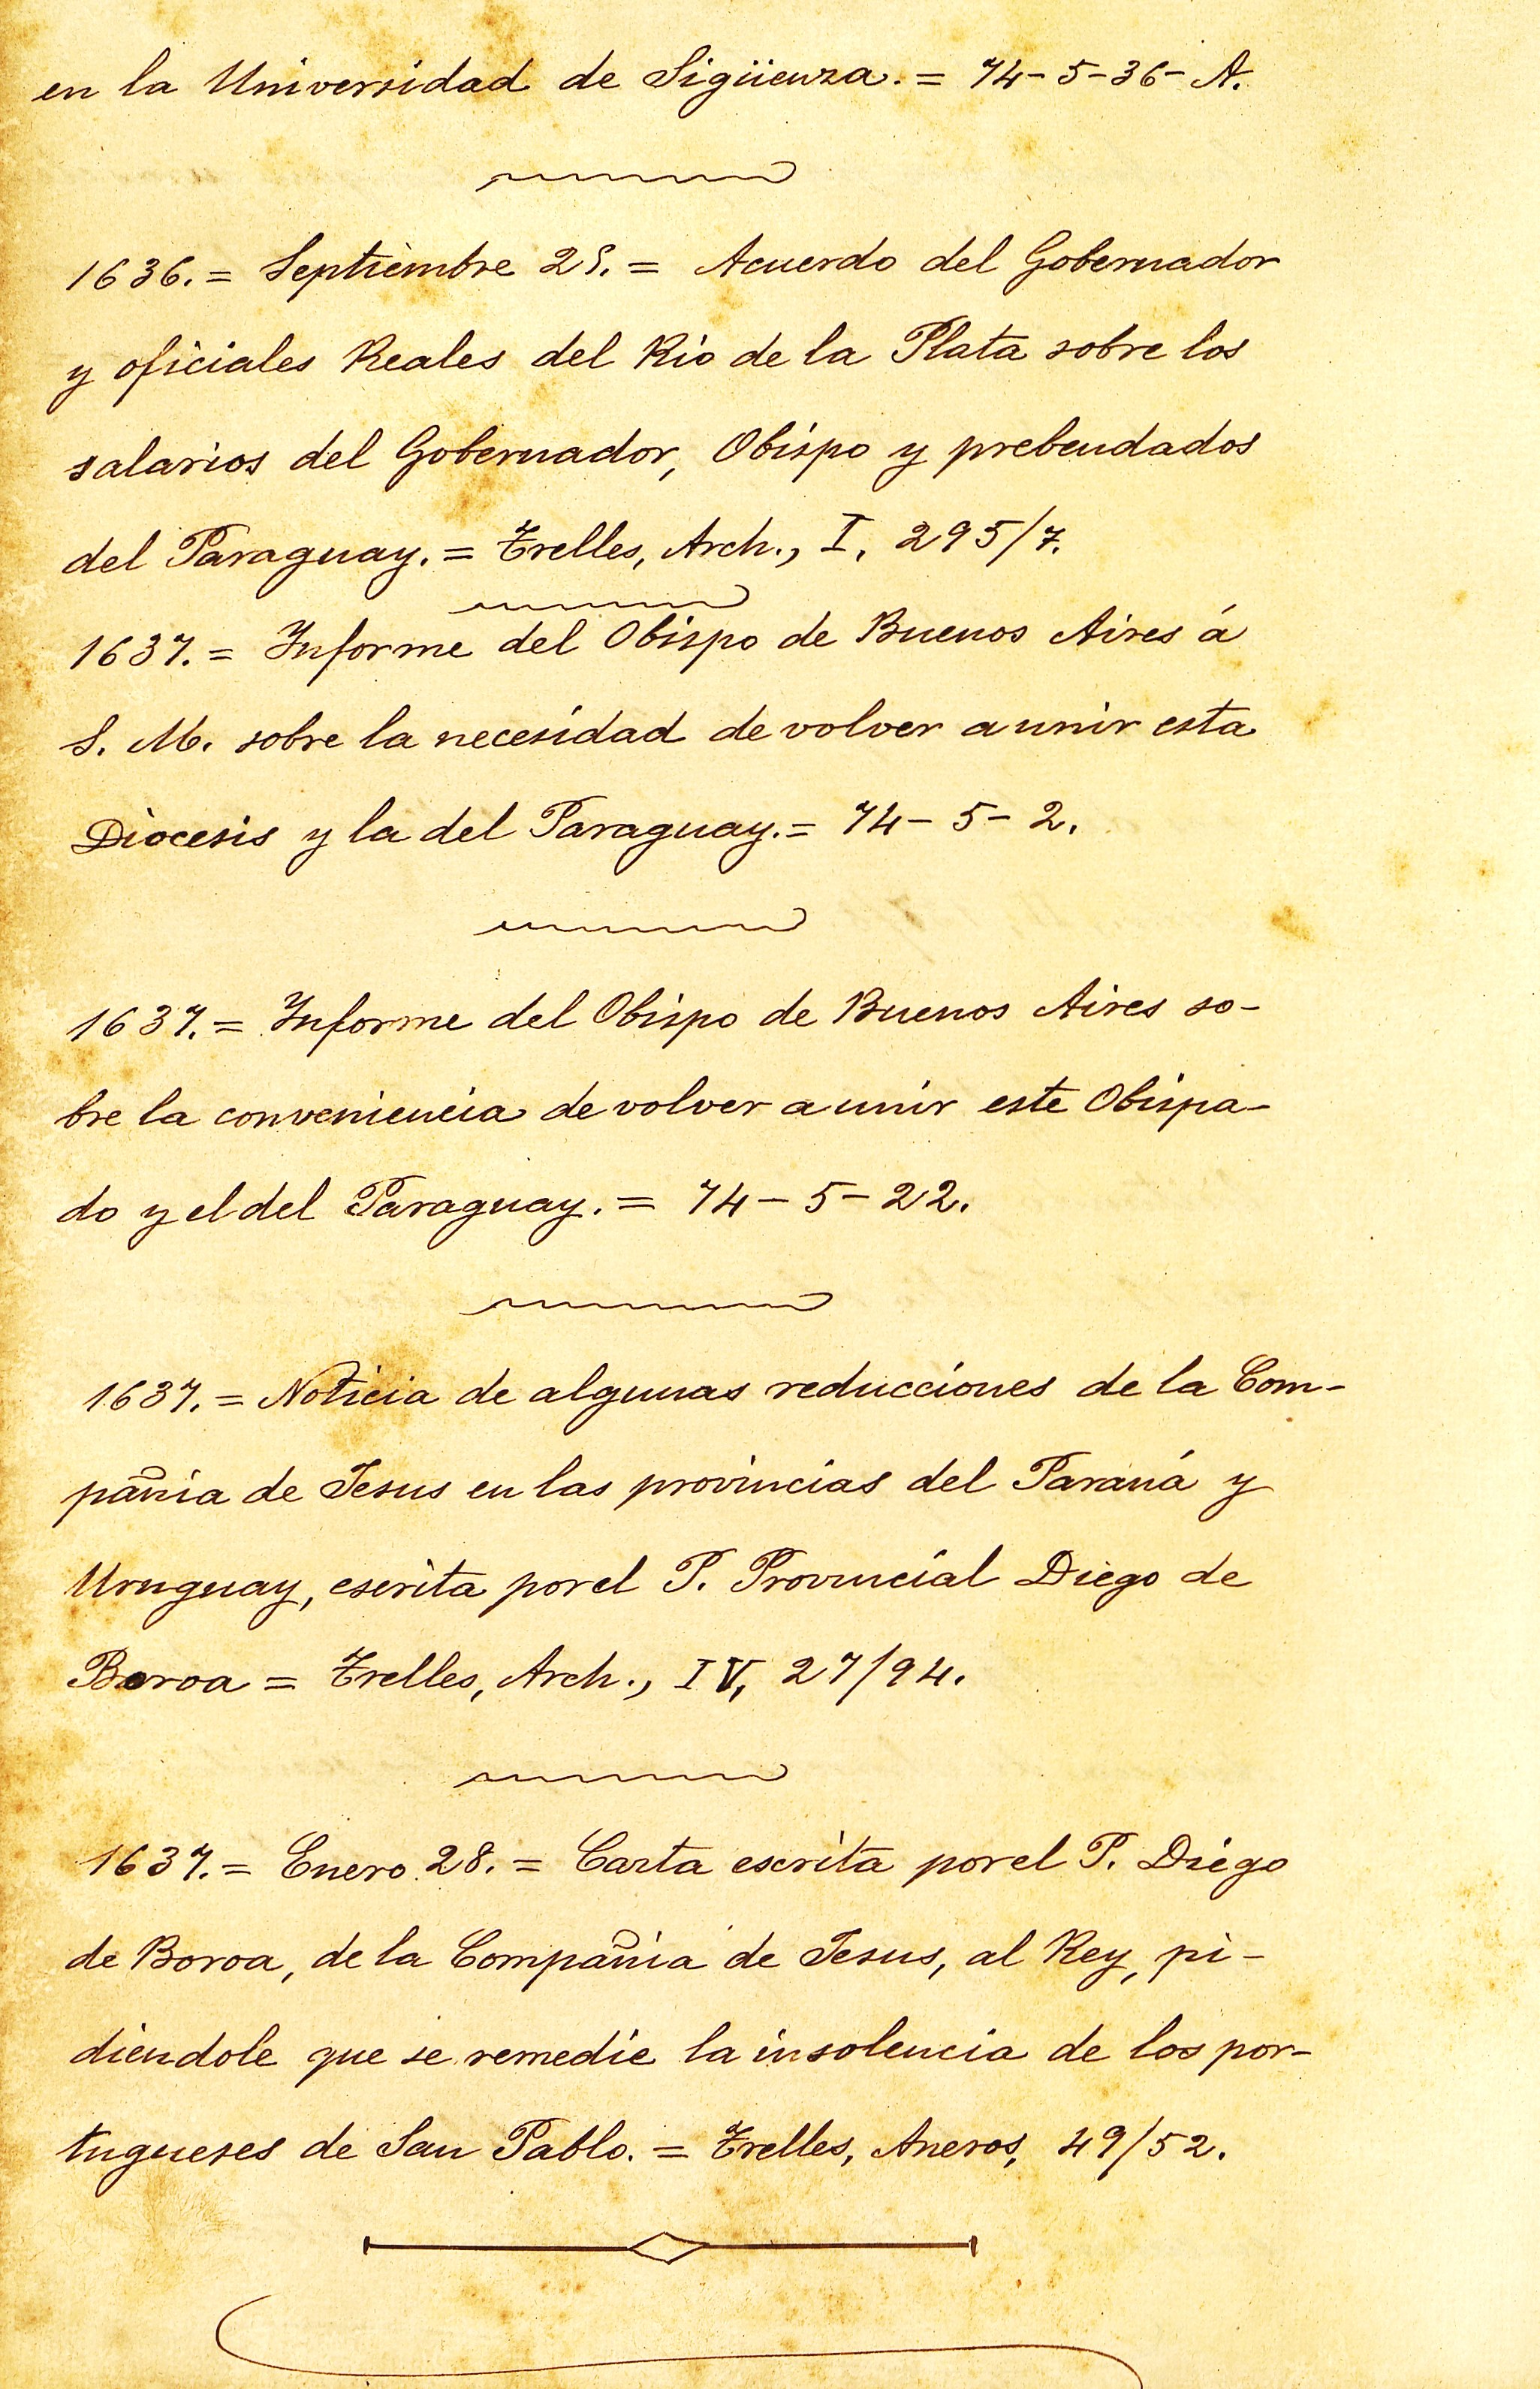 en la Universidad de Sigüenza. = 74-5-36-A.
1636. = Septiembre 25. = Acuerdo del Gobernador
y oficiales Reales del Rio de la Plata sobre los
salarios del Gobernador, Obispo y prebendados
del Paraguay. = Trelles, Arch., I, 295/7.
1637. = Informe del Obispo de Buenos Aires á
S. M. sobre la necesidad de volver a unir esta
Diocesis y la del Paraguay. = 74-5-2.
1637. = Informe del Obispo de Buenos Aires so-
bre la conveniencia de volver a unir este Obispa-
do y el del Paraguay. = 74-5-22.
1637. = Noticia de algunas reducciones de la Com-
pañia de Jesus en las provincias del Paraná y
Uruguay, escrita por el P. Provincial Diego de
Boroa = Trelles, Arch., IV, 27/94.
1637. = Enero 28. = Carta escrita por el P. Diego
de Boroa, de la Compañia de Jesus, al Rey, pi-
diendole que se remedie la insolencia de los por-
tugueses de San Pablo. = Trelles, Aneros, 49/52.